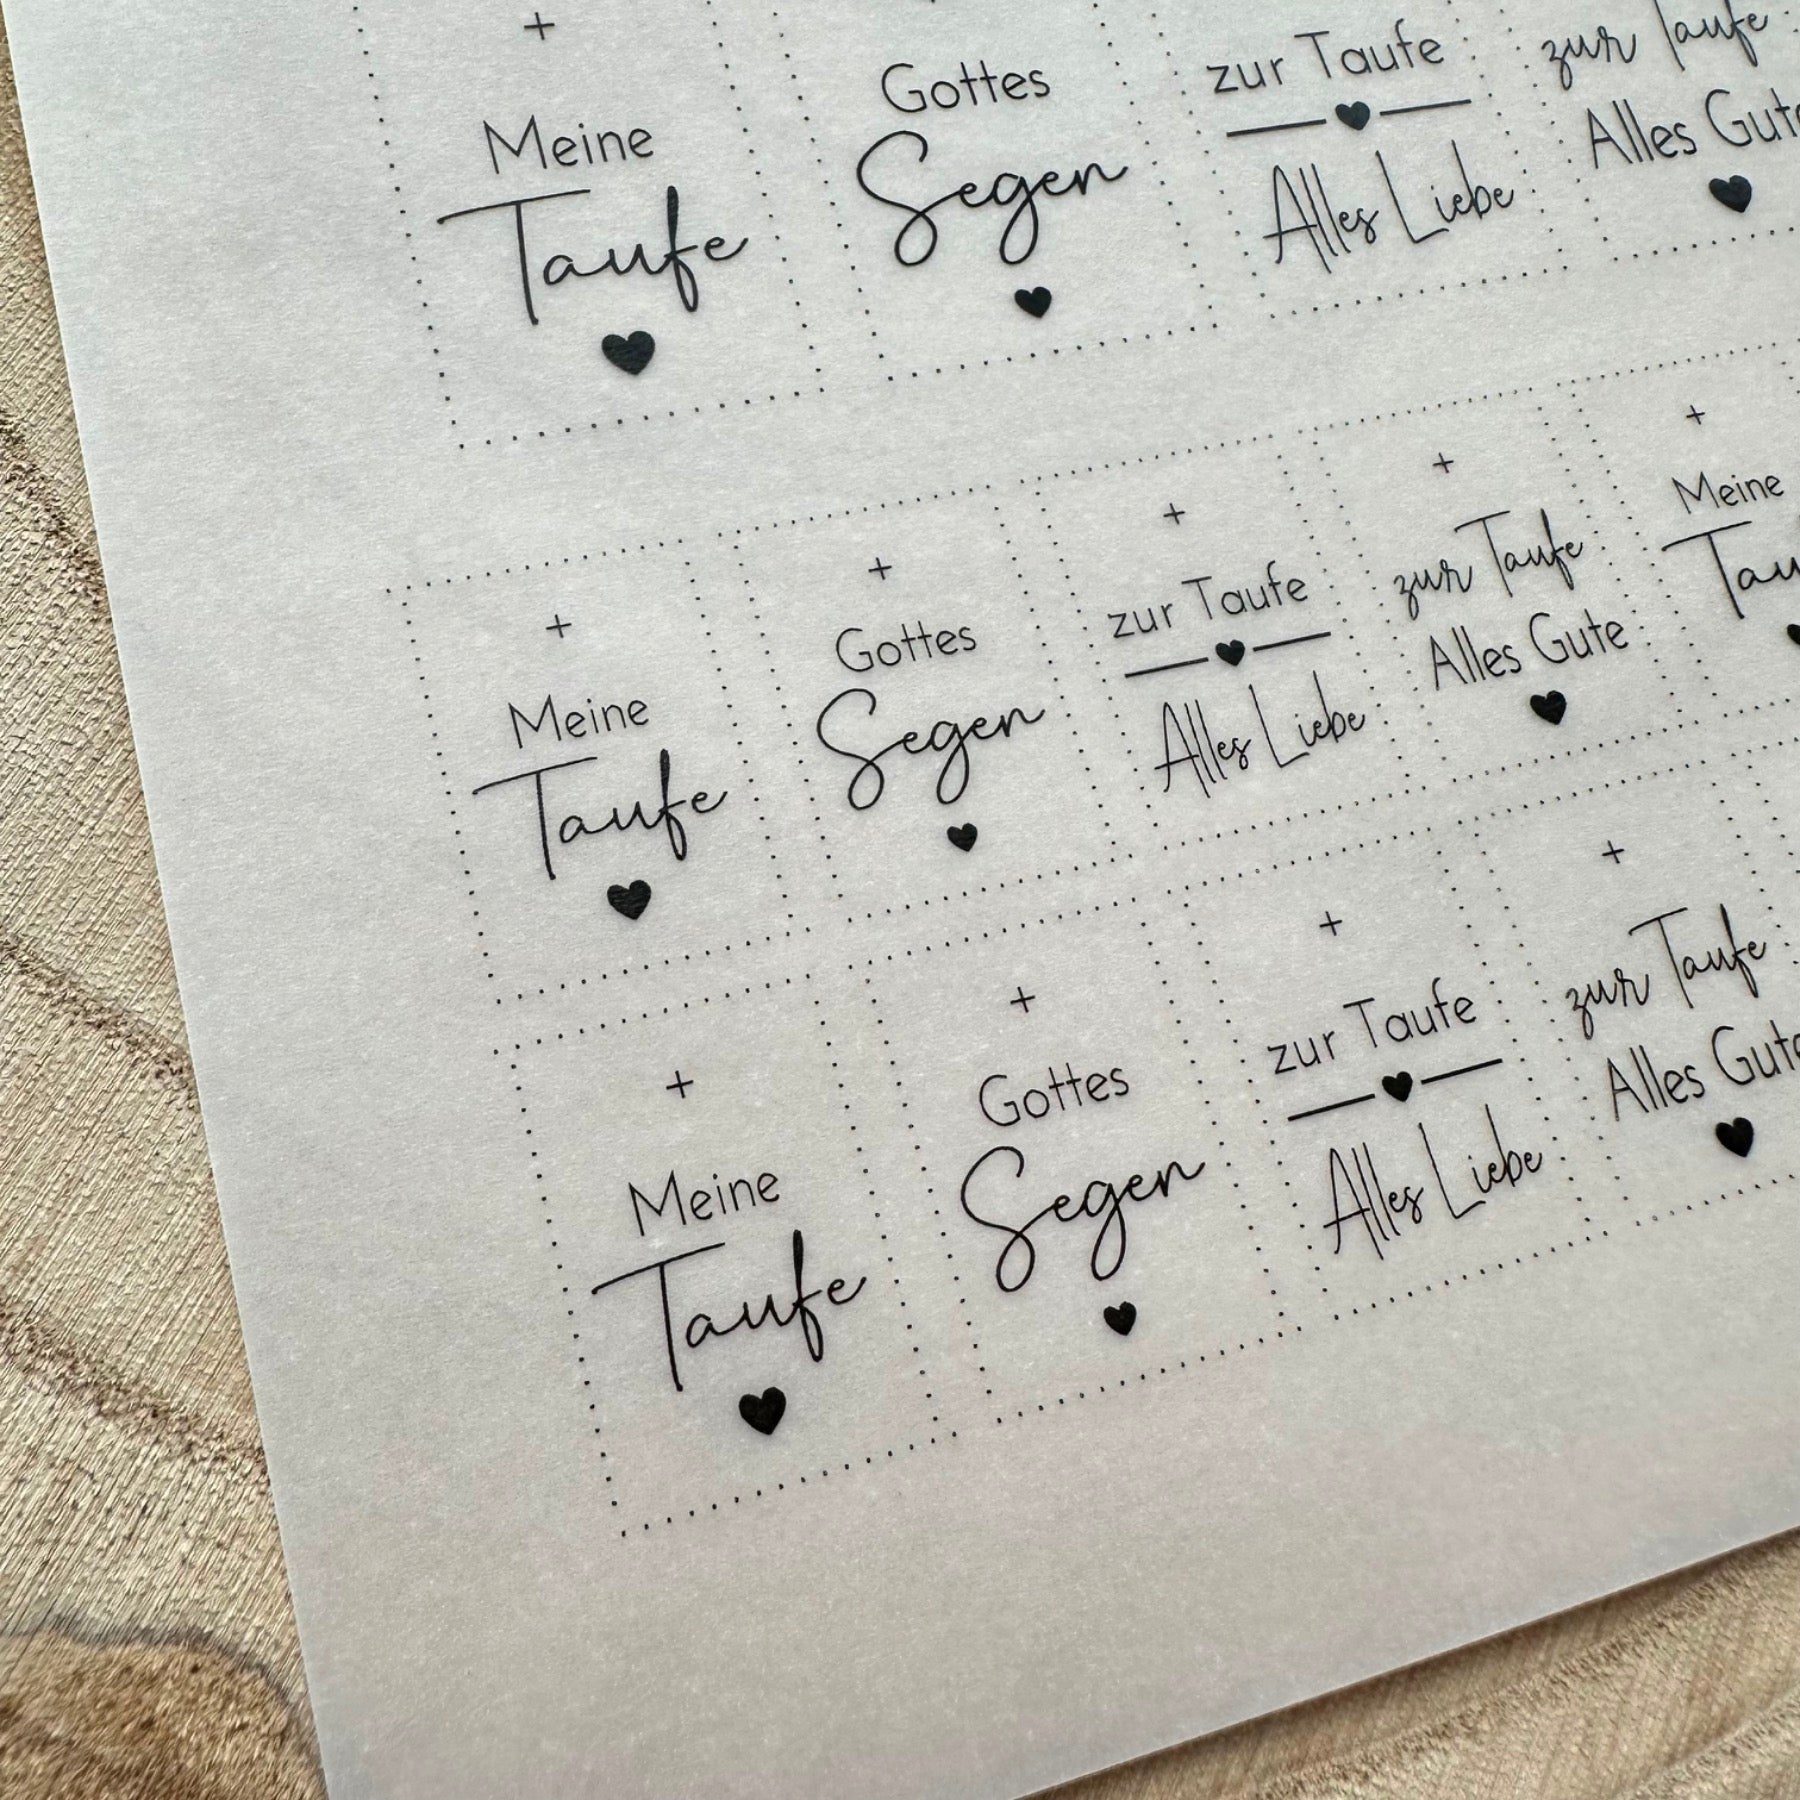 +
Meine
Taufe
Gottes
Segen
zur Taufe
Alles Liebe
zur Taufe
Alles Gute
+
Meine
Taufe
+
Gottes
Segen
+
zur Taufe
Alles Liebe
+
zur Taufe
Alles Gute
+
Meine
Tau
+
Meine
Taufe
+
Gottes
Segen
+
zur Taufe
Alles Liebe
+
zur Taufe
Alles Gute